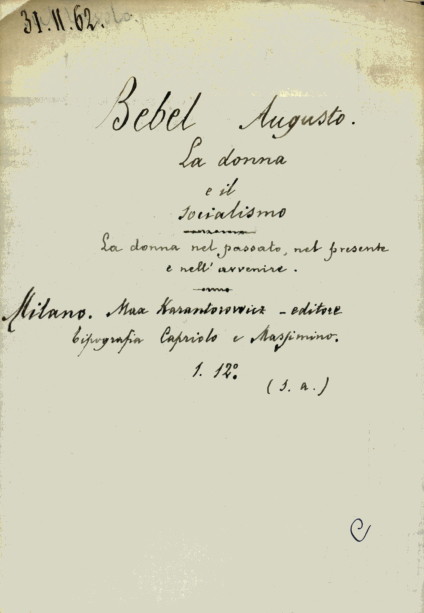 31.11.62.
Bebel Augusto.
La donna
e il
socialismo
La donna nel passato, nel presente
e nell'avvenire.
Milano. Max Karantorowicz - editore
tipografia Capriolo e Massimino.
1. 12°.
(s. a.)
C